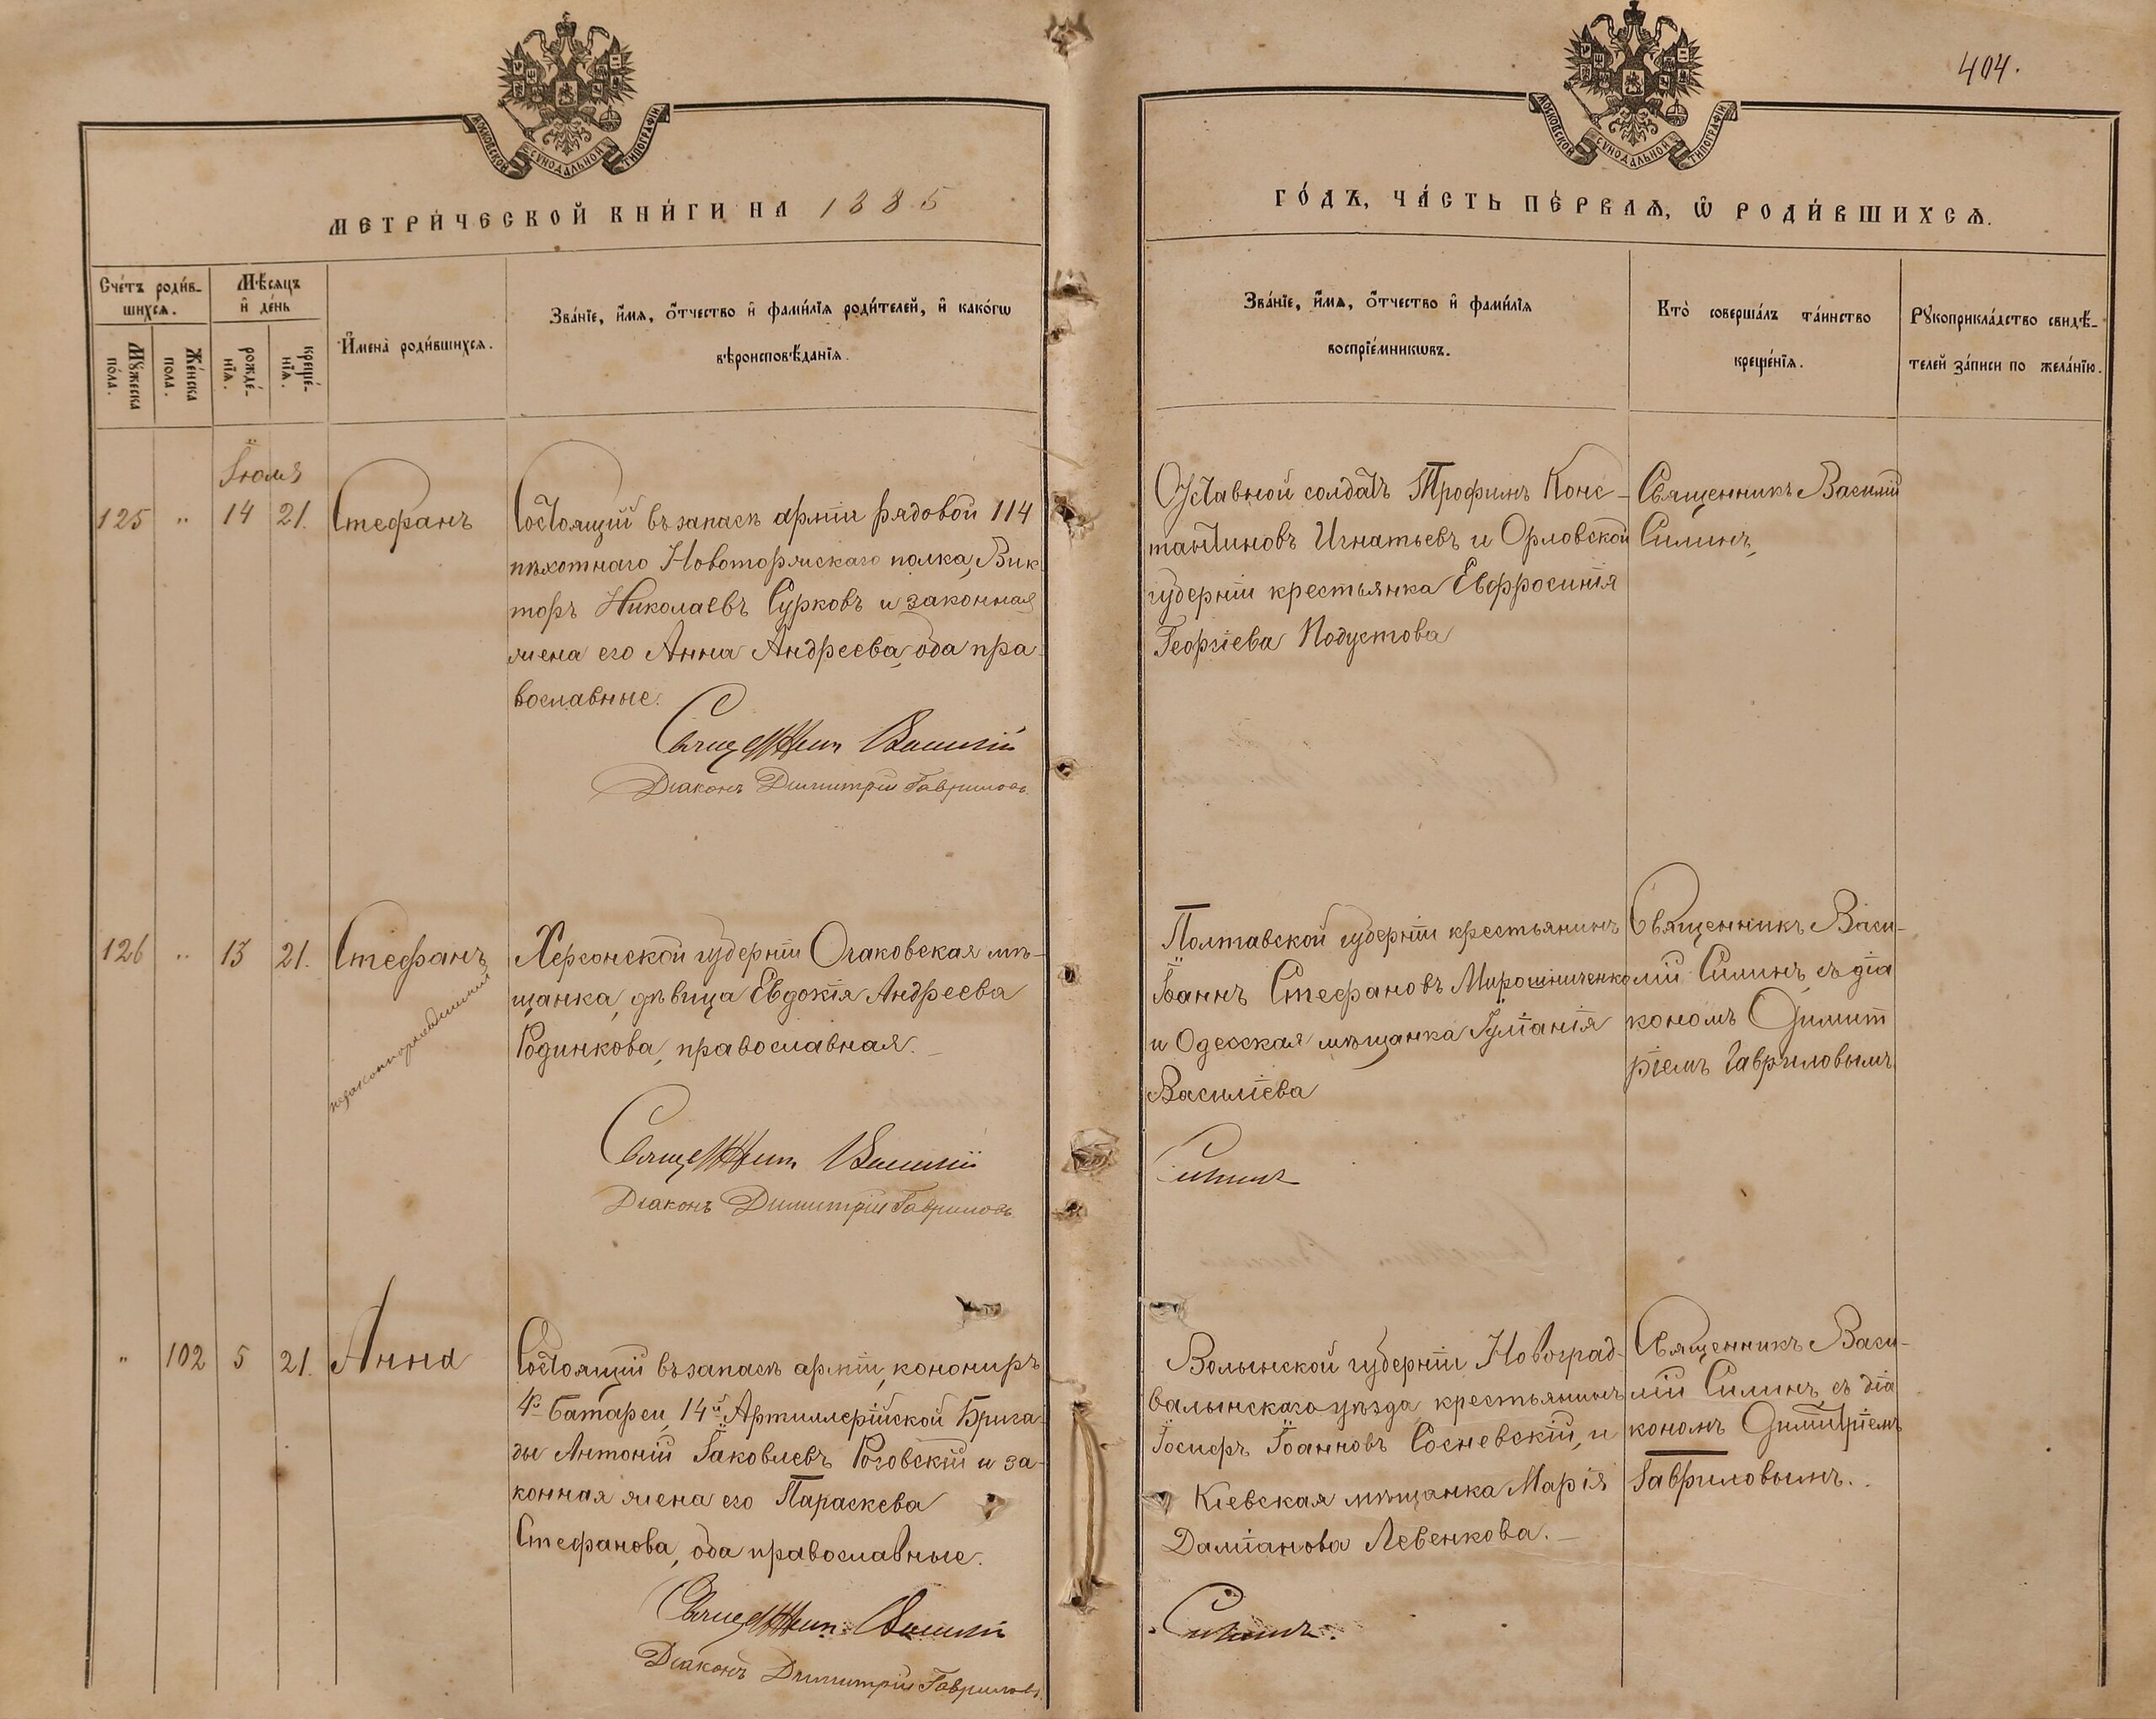 404.
МОСКОВСКОЙ СѴНОДАЛЬНОЙ ТИПОГРАФІИ
МОСКОВСКОЙ СѴНОДАЛЬНОЙ ТИПОГРАФІИ
МЕТРИ́ЧЕСКОЙ КНИ́ГИ НА 1885
ГО́ДЪ, ЧА́СТЬ ПЕ́РВАѦ, Ѡ҆ РОДИ́ВШИХСѦ.
Сче́тъ роди́в-
шихсѧ.
Мѣ́сѧцъ
и҆ де́нь
Мꙋ́жеска
по́ла.
Же́нска
по́ла.
рожде́-
нїѧ.
креще́-
нїѧ.
И҆мена̀ роди́вшихсѧ.
Зва́нїе, и҆́мѧ, ѻ҆́тчество и҆ фами́лїѧ роди́телей, и҆ како́гѡ
вѣроисповѣ́данїѧ.
Зва́нїе, и҆́мѧ, ѻ҆́тчество и҆ фами́лїѧ
воспрїе́мникѡвъ.
Кто̀ соверша́лъ та́инство
креще́нїѧ.
Рꙋкоприкла́дство свидѣ́-
телей за́писи по жела́нїю.
Іюля
125 „ 14 21. Стефанъ
Состоящій въ запасѣ арміи рядовой 114
пѣхотнаго Новоторжскаго полка, Вик-
торъ Николаевъ Сурковъ и законная
жена его Анна Андреева, оба пра-
вославные.
Священник Василій
Діаконъ Димитрій Гавриловъ
Отставной солдатъ Трофимъ Конс-
тантиновъ Игнатьевъ и Орловской
губерніи крестьянка Евфросинія
Георгіева Подустова
Священникъ Василій
Силинъ,
126 „ 13 21. Стефанъ
незаконнорожденный
Херсонской губерніи Очаковская мѣ-
щанка, дѣвица Евдокія Андреева
Родинкова, православная.
Священник Василій
Діаконъ Димитрій Гавриловъ
Полтавской губерніи крестьянинъ
Іоаннъ Стефановъ Мирошниченко
и Одесская мѣщанка Іуліанія
Василіева
Силинъ
Священникъ Васи-
лій Силинъ, съ діа
кономъ Димит
ріемъ Гавриловымъ
„ 102 5 21. Анна
Состоящій въ запасѣ арміи, конониръ
4й батареи, 14й Артиллерійской Брига-
ды Антоній Іаковлевъ Роговскій и за-
конная жена его Параскева
Стефанова, оба православные.
Священник Василій
Діаконъ Димитрій Гавриловъ
Волынской губерніи Новоград-
валынскаго уѣзда, крестьянинъ
Іосифъ Іоанновъ Сосневскій, и
Кіевская мѣщанка Марія
Даміанова Левенкова.
Силинъ.
Священникъ Васи-
лій Силинъ, съ діа
кономъ Димитріемъ
Гавриловымъ.